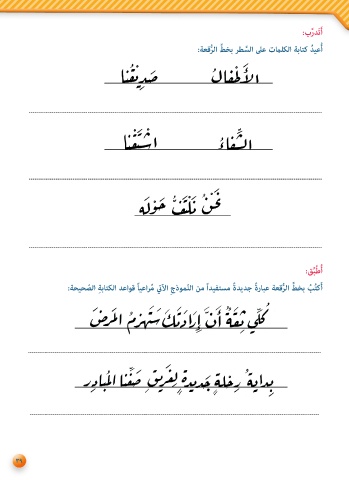 أتدرّب:
أُعيدُ كتابةَ الكلماتِ على السَّطرِ بخطِّ الرُّقعة:
الأَطْفالُ صَدِيْقُنا
الشِّفاءُ اشْتَقْنا
نَحْنُ نَلْتَفُّ حَوْلَه
أطبّق:
أكتُبُ بخطِّ الرُّقعة عبارةً جديدةً مستفيداً من النّموذجِ الآتي مُراعياً قواعد الكتابةِ الصّحيحة:
كُلِّي ثِقَةٌ أَنَّ إِرَادَتَكَ سَتَهزِمُ المَرضَ
بِدايةُ رِحْلةٍ جَديدةٍ لِفَريقِ صَفِّنا المُبادِرِ
٣٩